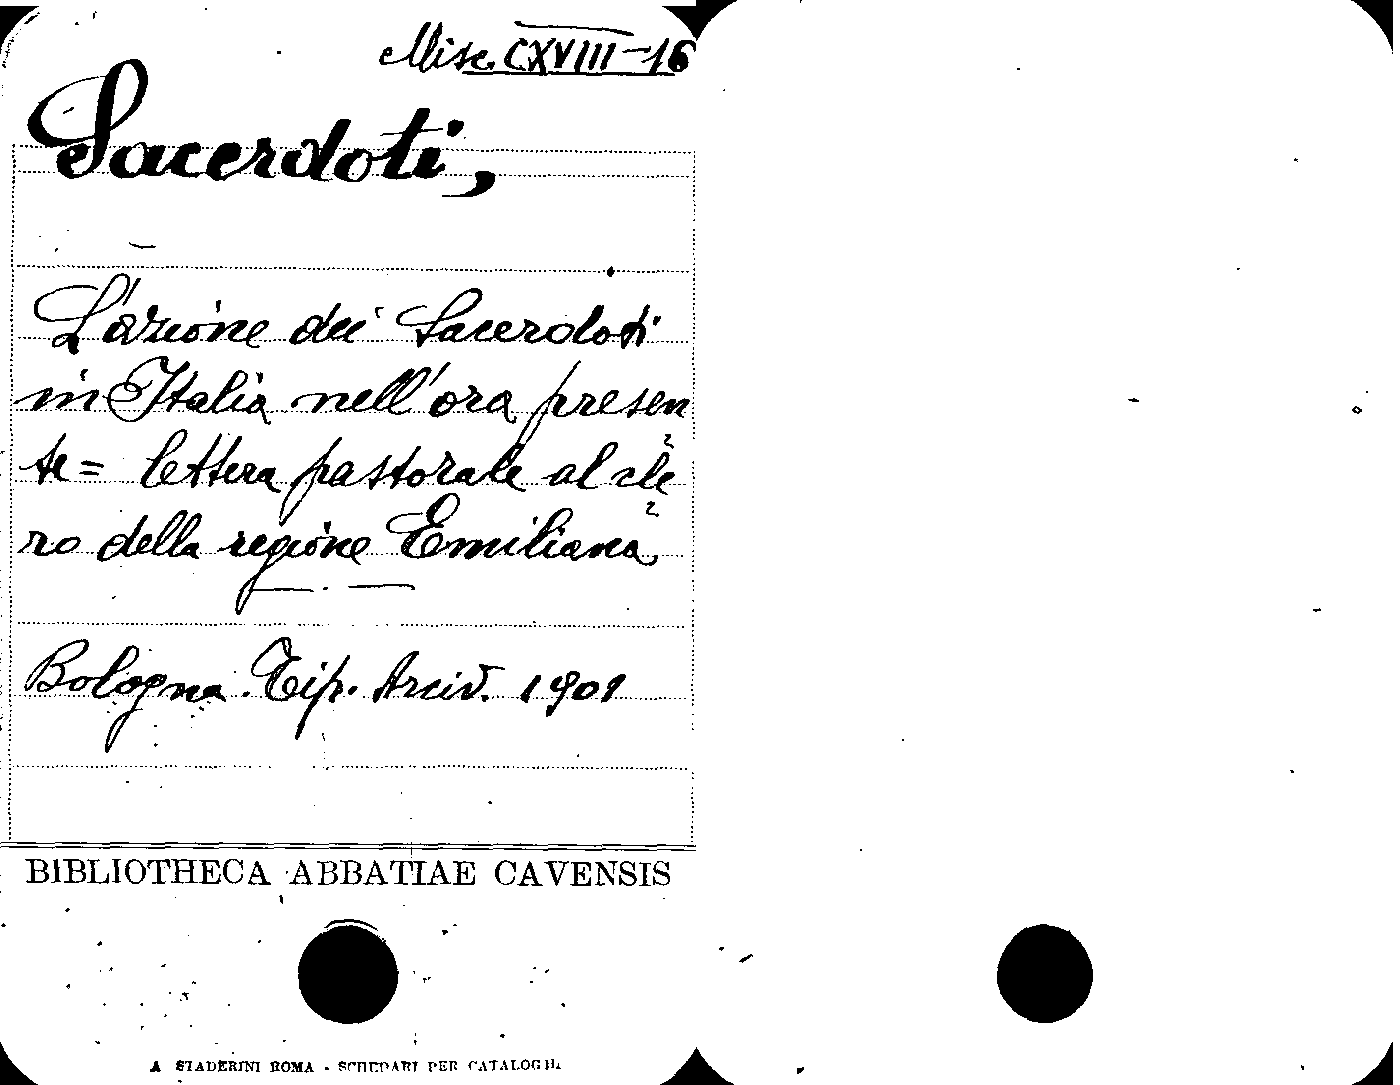 Misc. CXVIII-16
Sacerdoti,
L'azione dei Sacerdoti
in Italia nell'ora presen
te = lettera pastorale al cle
ro della regione Emiliana
Bologna. Tip. Arciv. 1901
BIBLIOTHECA ABBATIAE CAVENSIS
A STADERINI ROMA - SCHEDARI PER CATALOGHI